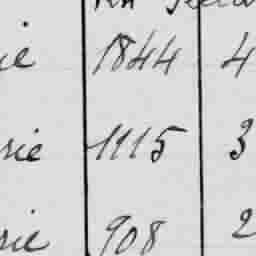 ie 1844 4
rie 1115 3
rie 908 2